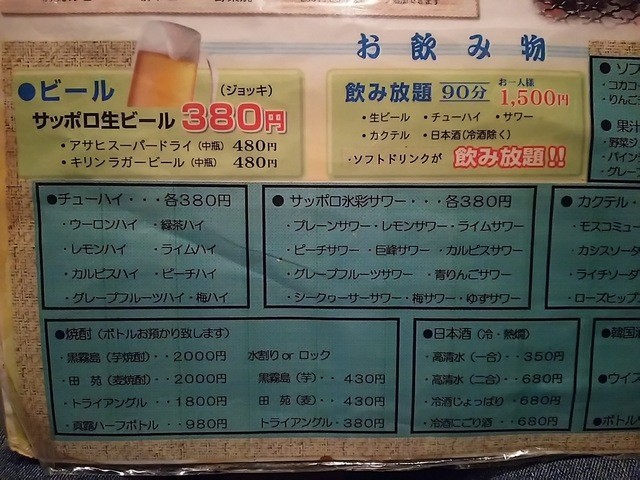 お飲み物
●ビール
(ジョッキ)
サッポロ生ビール 380円
・アサヒスーパードライ(中瓶) 480円
・キリンラガービール(中瓶) 480円
飲み放題 90分 お一人様 1,500円
・生ビール ・チューハイ ・サワー
・カクテル ・日本酒(冷酒除く)
・ソフトドリンクが 飲み放題!!
●ソフ
コカコ
りんご
●果汁
・野菜ジ
・パイン
・グレー
●チューハイ・・・各380円
・ウーロンハイ ・緑茶ハイ
・レモンハイ ・ライムハイ
・カルピスハイ ・ピーチハイ
・グレープフルーツハイ・梅ハイ
●サッポロ氷彩サワー・・各380円
・プレーンサワー・レモンサワー・ライムサワー
・ピーチサワー ・巨峰サワー ・カルピスサワー
・グレープフルーツサワー ・青りんごサワー
・シークヮーサーサワー・梅サワー・ゆずサワー
●カクテル・
・モスコミュー
・カシスソーダ
・ライチソーダ
・ローズヒップ
●焼酎(ボトルお預かり致します)
・黒霧島(芋焼酎)・・2000円
・田 苑(麦焼酎)・・2000円
・トライアングル・・1800円
・真露ハーフボトル・・980円
水割りorロック
黒霧島(芋)・・430円
田 苑(麦)・・430円
トライアングル・380円
●日本酒(冷・熱燗)
・高清水(一合)・・350円
・高清水(二合)・・680円
・冷酒じょっぱり・680円
・冷酒にごり酒・・680円
●韓国
●ウイス
●ボトル